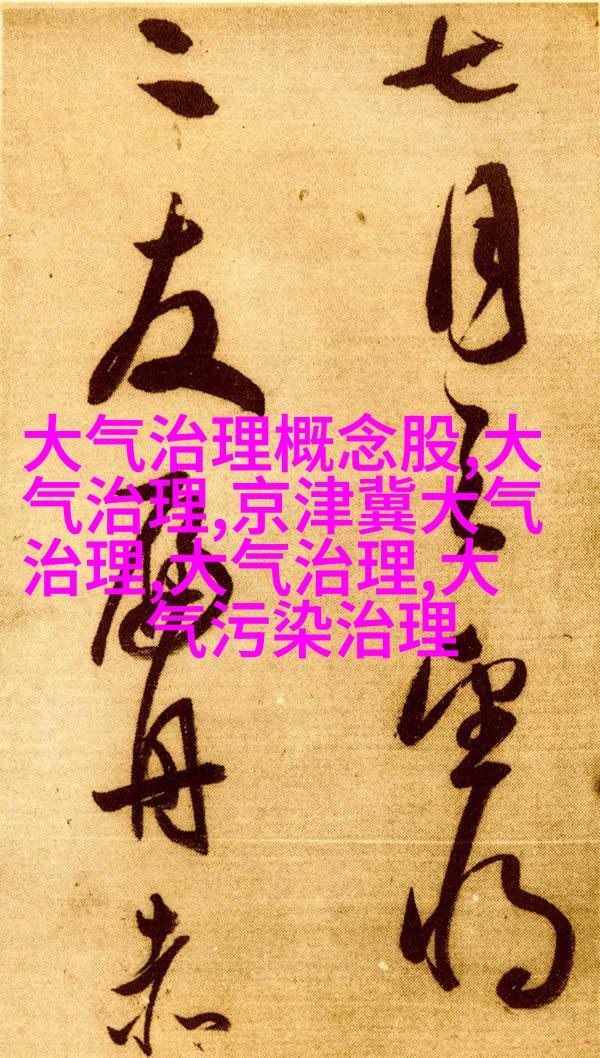 七月之望将
二友舟赤
大气治理概念股,大
气治理,京津冀大气
治理,大气治理,大
气污染治理